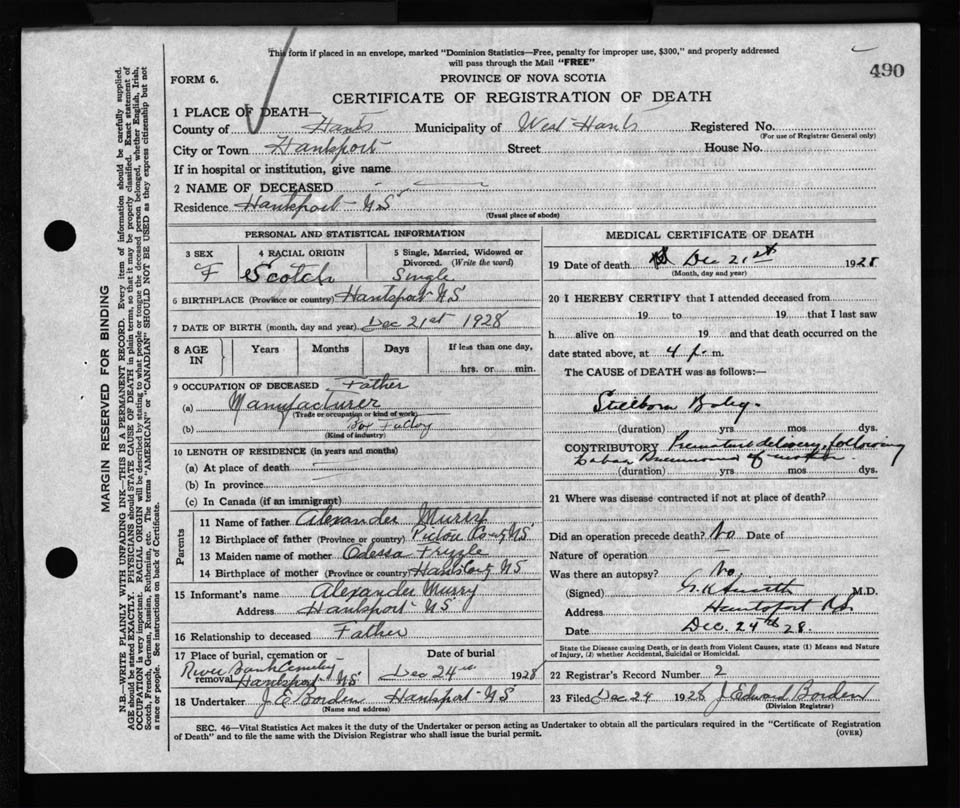 This form if placed in an envelope, marked "Dominion Statistics—Free, penalty for improper use, $300," and properly addressed
will pass through the Mail "FREE"
490
FORM 6.
PROVINCE OF NOVA SCOTIA
CERTIFICATE OF REGISTRATION OF DEATH
1 PLACE OF DEATH—
County of Hants Municipality of West Hants Registered No.
(For use of Registrar General only)
City or Town Hantsport Street House No.
If in hospital or institution, give name
2 NAME OF DECEASED
Residence Hantsport N.S.
(Usual place of abode)
MARGIN RESERVED FOR BINDING
N.B.—WRITE PLAINLY WITH UNFADING INK—THIS IS A PERMANENT RECORD. Every item of information should be carefully supplied.
AGE should be stated EXACTLY. PHYSICIANS should STATE CAUSE OF DEATH in plain terms, so that it may be properly classified. Exact statement of
OCCUPATION is very important. RACIAL ORIGIN will be described by stating to what people or tongue the deceased person belonged, whether English, Irish,
Scotch, French, German, Russian, Ruthenian, etc. The terms "AMERICAN" or "CANADIAN" SHOULD NOT BE USED as they express citizenship but not
a race or people. See instructions on back of Certificate.
PERSONAL AND STATISTICAL INFORMATION
3 SEX
F
4 RACIAL ORIGIN
Scotch
5 Single, Married, Widowed or
Divorced. (Write the word)
Single
6 BIRTHPLACE (Province or country) Hantsport N.S
7 DATE OF BIRTH (month, day and year) Dec 21st 1928
8 AGE IN
Years Months Days If less than one day,
hrs. or min.
9 OCCUPATION OF DECEASED Father
(a) Manufacturer
(Trade or occupation or kind of work)
(b) Box Factory
(Kind of industry)
10 LENGTH OF RESIDENCE (in years and months)
(a) At place of death
(b) In province
(c) In Canada (if an immigrant)
Parents
11 Name of father Alexander
12 Birthplace of father (Province or country) Pictou Co N.S.
13 Maiden name of mother Odessa Frizzle
14 Birthplace of mother (Province or country) Hants Co N.S
15 Informant's name Alexander
Address Hantsport N.S.
16 Relationship to deceased Father
17 Place of burial, cremation or
removal River Bank Cemetery
Hantsport N.S.
Date of burial
Dec 24 1928
18 Undertaker J. E. Borden Hantsport N.S
(Name and address)
MEDICAL CERTIFICATE OF DEATH
19 Date of death Dec 21st 1928
(Month, day and year)
20 I HEREBY CERTIFY that I attended deceased from
19 to 19 that I last saw
h alive on 19 and that death occurred on the
date stated above, at 4 p. m.
The CAUSE of DEATH was as follows:—
Stillborn Baby.
(duration) yrs mos dys.
CONTRIBUTORY Premature delivery, following
Lobar Pneumonia of mother
(duration) yrs mos dys.
21 Where was disease contracted if not at place of death?
Did an operation precede death? No Date of
Nature of operation —
Was there an autopsy? No.
(Signed) M.D.
Address Hantsport N.S.
Date Dec. 24th 28.
State the Disease causing Death, or in death from Violent Causes, state (1) Means and Nature
of Injury, (2) whether Accidental, Suicidal or Homicidal.
22 Registrar's Record Number 2
23 Filed Dec 24 1928 J. Edward Borden
(Division Registrar)
SEC. 46—Vital Statistics Act makes it the duty of the Undertaker or person acting as Undertaker to obtain all the particulars required in the "Certificate of Registration
of Death" and to file the same with the Division Registrar who shall issue the burial permit.
(OVER)